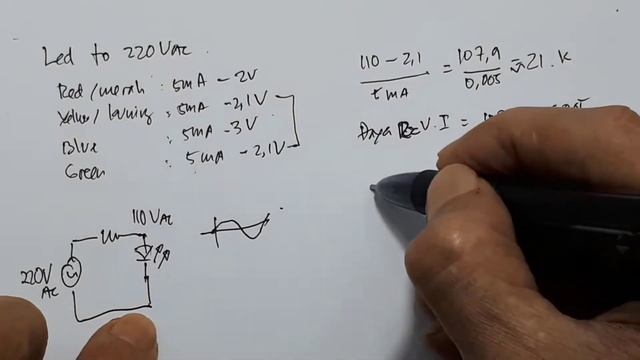 Led to 220VAC.
Red/merah : 5mA - 2V
Yellow/kuning : 5mA - 2,1V
Blue : 5mA - 3V
Green : 5mA - 2,1V
110 - 2,1 / 5mA = 107,9 / 0,005 ≈ 21.k
Daya R = V.I =
110 VAC
220V
AC